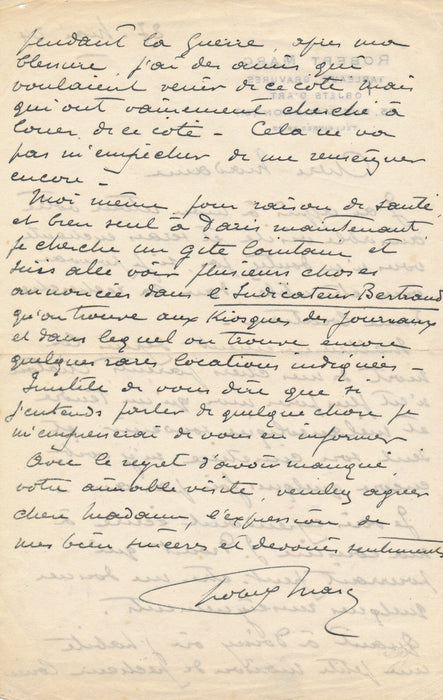 pendant la Guerre, après ma
blessure j'ai des amis qui
voulaient venir de ce coté mais
qui ont vainement cherché à
louer de ce coté - Cela ne va
pas m'empêcher de me renseigner
encore -
Moi même pour raison de santé
et bien seul à Paris maintenant
je cherche un gîte lointain et
suis allé voir plusieurs choses
annoncées dans l'Indicateur Bertrand
qu'on trouve aux Kiosques des Journaux
et dans lequel on trouve encore
quelques rares locations indiquées -
Inutile de vous dire que si
j'entends parler de quelque chose je
m'empresserai de vous en informer
Avec le regret d'avoir manqué
votre aimable visite, veuillez agréer
chère Madame, l'expression de
mes bien sincères et dévoués sentiments
Robert Marc